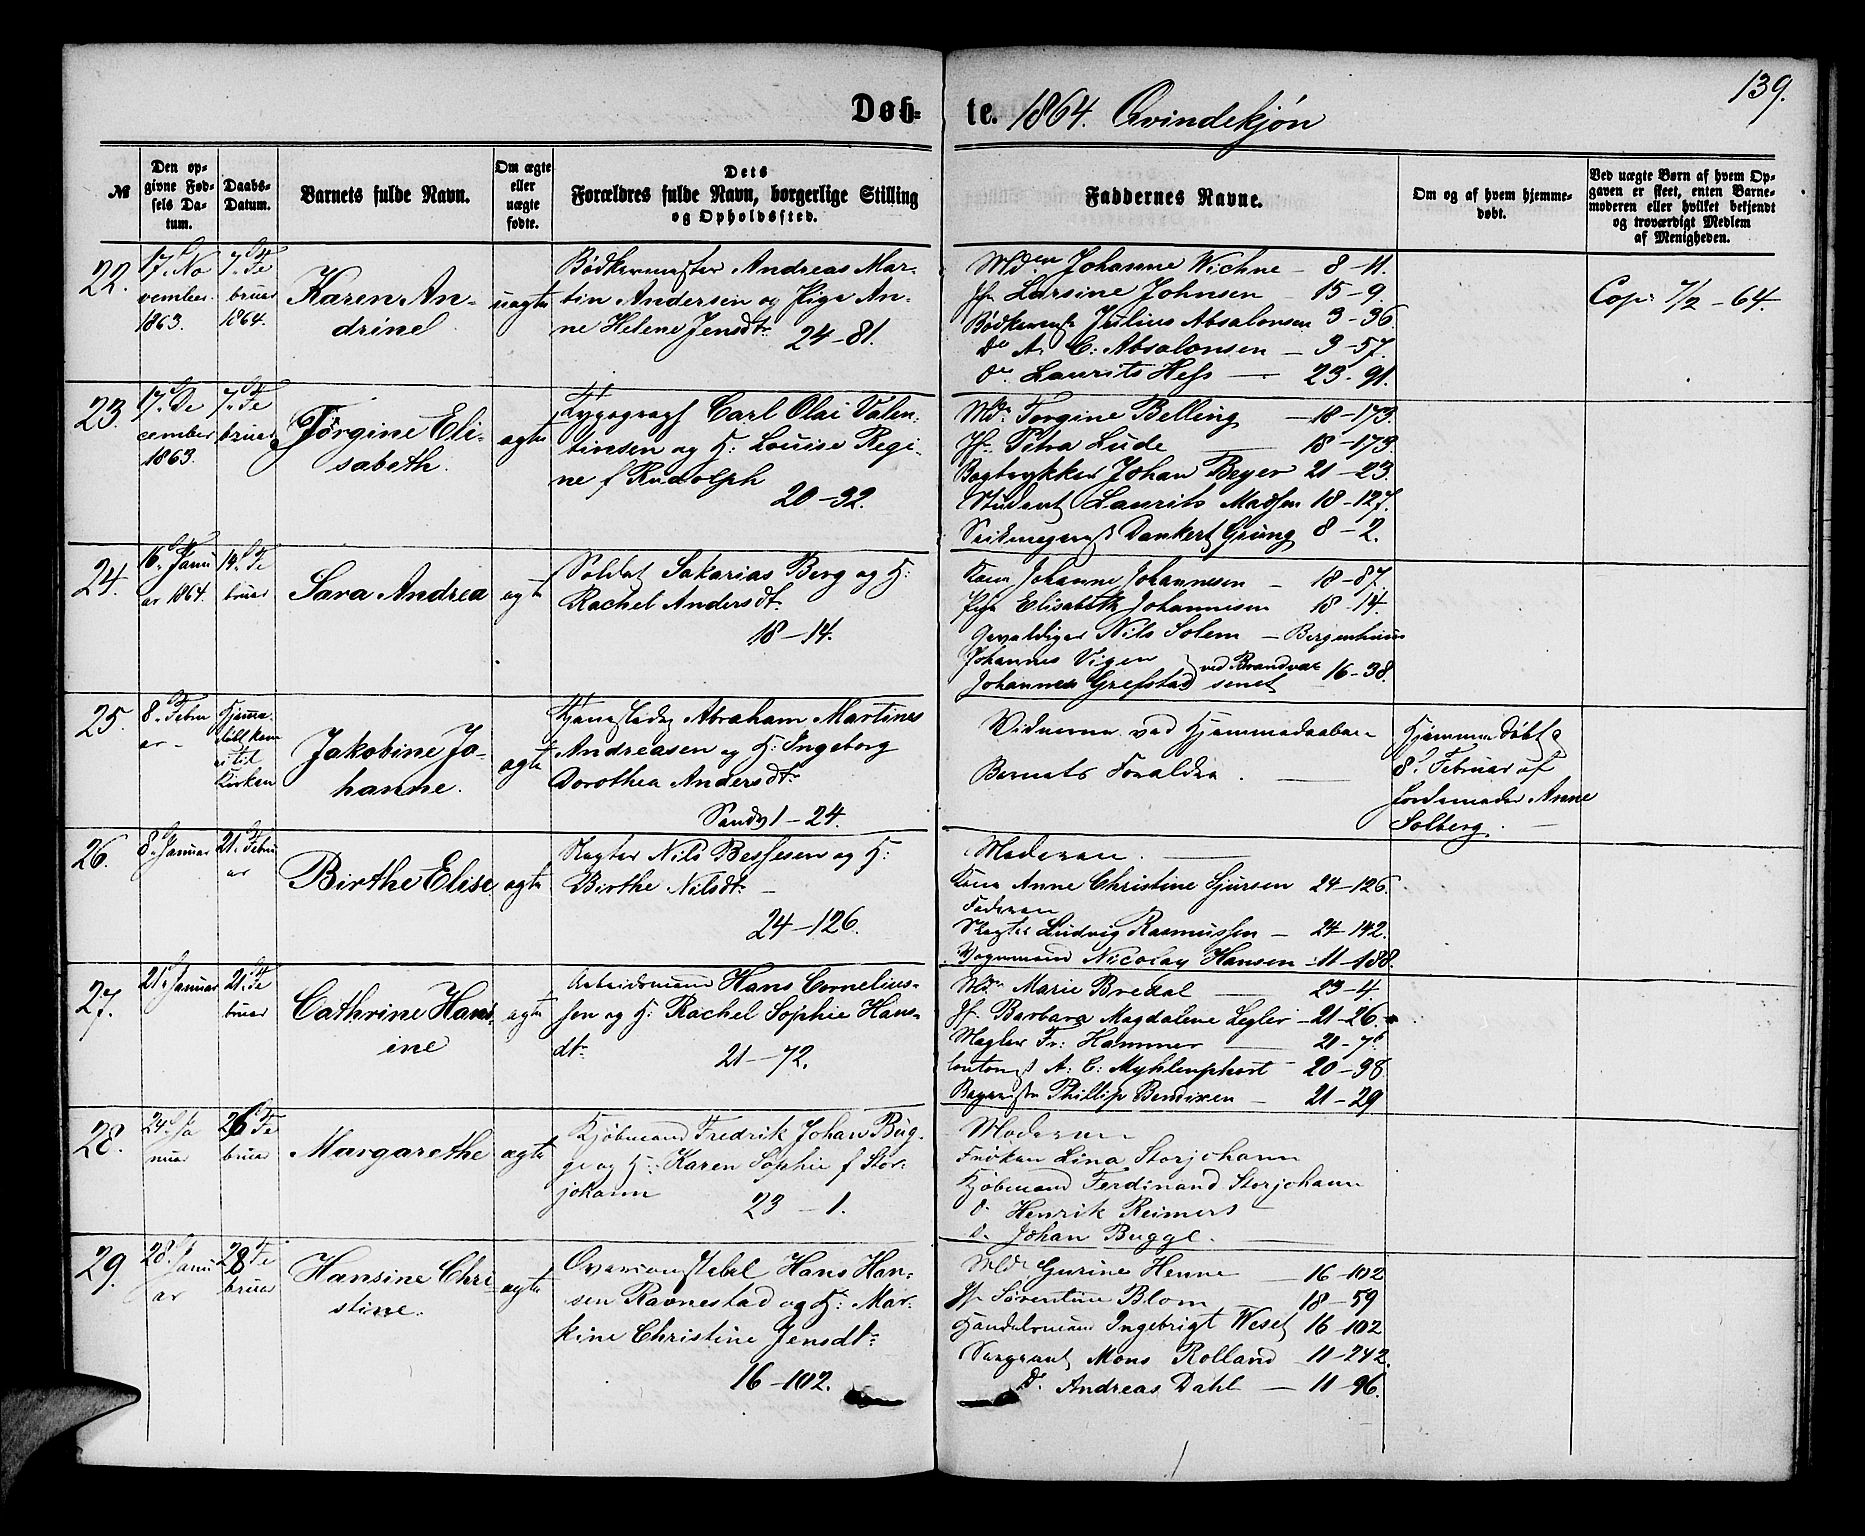 139.
Døb=
te. 1864. Qvindekjøn
№
Den op-
givne Fød-
sels Da-
tum.
Daabs-
Datum.
Barnets fulde Navn.
Om ægte
eller
uægte
fødte.
Dets
Forældres fulde Navn, borgerlige Stilling
og Opholdssted.
Faddernes Navne.
Om og af hvem hjemme-
døbt.
Ved uægte Børn af hvem Op-
gaven er skeet, enten Barne-
moderen eller hvilket bekjendt
og troværdigt Medlem
af Menigheden.
22.
17. No
vember
1863.
7. Fe
bruar
1864.
Karen An-
drine
uægte
Bødkermester Andreas Mar-
tin Andersen og Pige An-
ne Helene Jensdtr
24-81.
Md. Johanne Wichne - 8-11.
Jfr Larsine Johnsen - 15-9.
Bødkersv. Julius Absalonsen 3-36
Do A. C. Absalonsen - 3-57.
Do. Laurits Hess - 23-91.
Cop. 7/2-64.
23.
17. De
cember
1863.
7. Fe
bruar
Jørgine Eli-
sabeth.
ægte
Typograph Carl Olai Valen-
tinsen og H: Louise Regi-
ne f Rudolph
20-32.
Md. Jørgine Belling - 18-173.
Jfr. Petra Lude 18-173.
Bogtrykker Johan Beyer 21-23.
Student Laurits Madsen 18-127.
Dankert Grung 8-2.
24.
16. Janu
ar 1864.
14. Fe
bruar
Sara Andrea
ægte
Soldat Sakarias Berg og H:
Rachel Andersdtr
18-14.
Kone Johanne Johannesen - 18-87.
Pige Elisabeth Johannesen 18-14.
Gevaldiger Nils Solem - Bergenhuus
Johannes Vigen
Johannes Grefstad ved Brandvæ
senet 16-38.
25.
8. Febru
ar -
Hjemme.
Ikke kom
et til
Kirken
Jakobine Jo-
hanne.
ægte
Abraham Martines
Andreasen og H: Ingeborg
Dorothea Andersdtr
Sandv 1-24.
Vidnerne ved Hjemmedaaben
Barnets Forældre.
Hjemmedøbt
8. Februar af
Jordemoder Anne
Solberg.
26.
8. Januar
21. Febru
ar
Birthe Elise
ægte
Slagter Nils Bessesen og H:
Birthe Nilsdtr -
24-126.
Moderen.
Kone Anne Christine Sjursen 24-126.
Faderen
Slagter Ludvig Rasmussen - 24-142.
Vognmand Nicolay Hansen - 11-188.
27.
21. Januar
21. Fe
bruar
Cathrine Hans
ine
ægte
Arbeidsmand Hans Cornelius-
sen og H: Rachel Sophie Hans-
dtr.
21-72.
Md. Marie Bredal 23-4.
Jfr. Barbara Magdalene Legler - 21-26.
Mægler Fr: Hammer 21-76
A. C. Myhlenphort 20-38
Phillip Bendixen - 21-29
28.
24. Ja
nuar
26 Fe
bruar
Margarethe
ægte
Kjøbmand Fredrik Johan Bug-
ge og H: Karen Sophie f Stor-
johann
23-1.
Moderen
Frøken Lina Storjohann
Kjøbmand Ferdinand Storjohann
Do Henrik Reimers
Do. Johan Bugge.
29.
28. Janu
ar
28 Fe
bruar
Hansine Chri
stine.
ægte
Overconstabel Hans Han-
sen Ravnestad og H: Mar-
kine Christine Jensdtr
16-102.
Md. Gurine Henne 16-102
Jfr Sørentine Blom 18-59
Handelsmand Ingebrigt Weset 16-102
Sergeant Mons Rolland - 11-242.
Do. Andreas Dahl - 11-96.